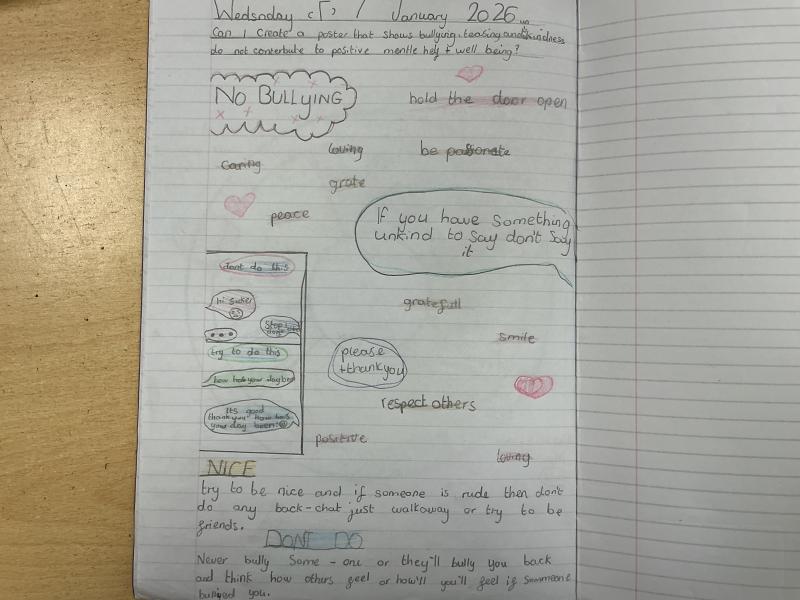 Wednsday 7 / January 2026
Can I Create a poster that shows bullying, teasing and unkindness
do not conterbute to positive mentle helf + well being?
No BULLYING
hold the door open
loving
be passonate
Caring
grate
peace
If you have something
unkind to say don't say
it
dont do this
hi suker
gratefull
Stop
smile
try to do this
please
+thankyou
how has your day bed
respect others
Its good
thankyou how has
your day been
positive
loving
NICE
try to be nice and if someone is rude then don't
do any back-chat just walkaway or try to be
friends.
DONT DO
Never bully Some-one or they'll bully you back
and think how others feel or how'll you'll feel if sommeone
bullied you.